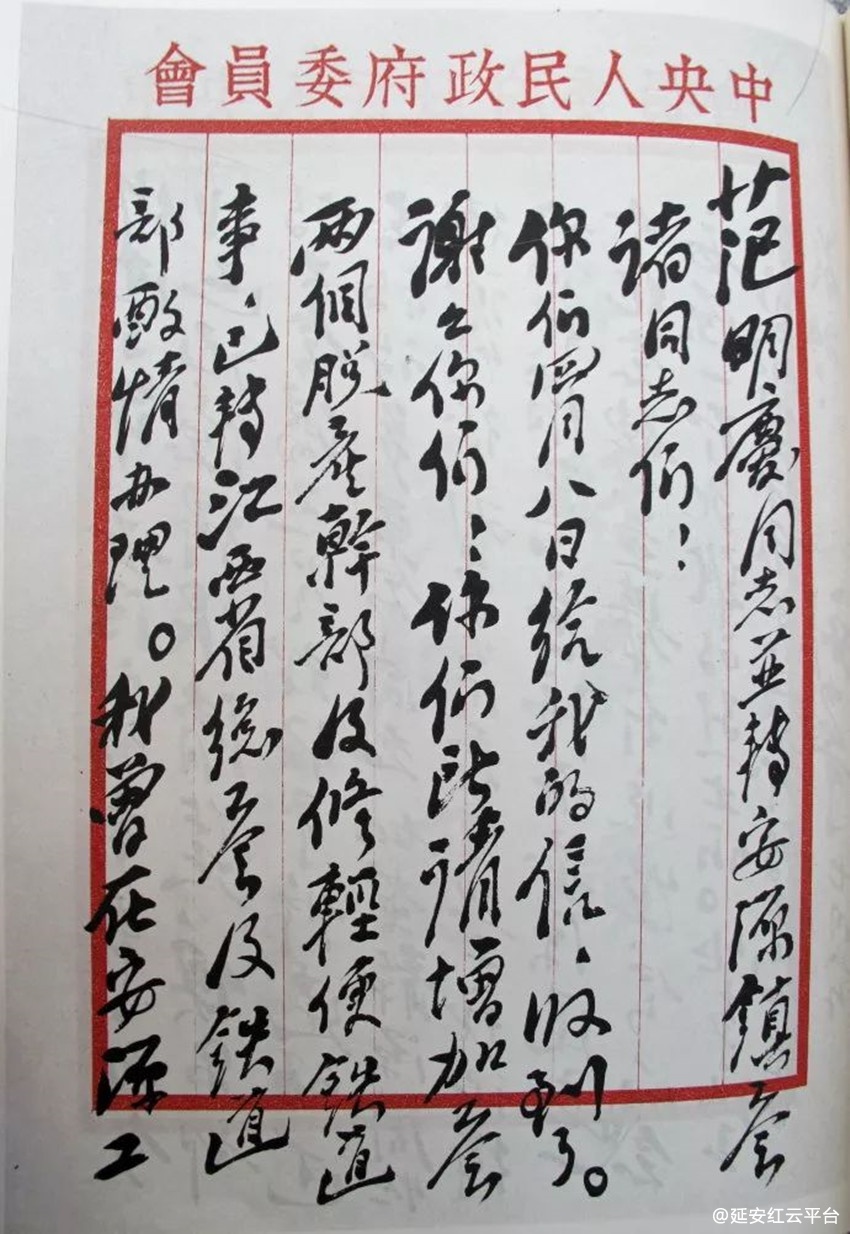 中央人民政府委員會
范明慶同志並轉安源鎮工会
諸同志们！
你们四月八日给我的信、收到了。
謝々你们！你们所請增加工会
兩個脫產幹部及修輕便鉄道
事、已轉江西省總工会及鉄道
部酌情办理。我曾在安源工
@延安红云平台